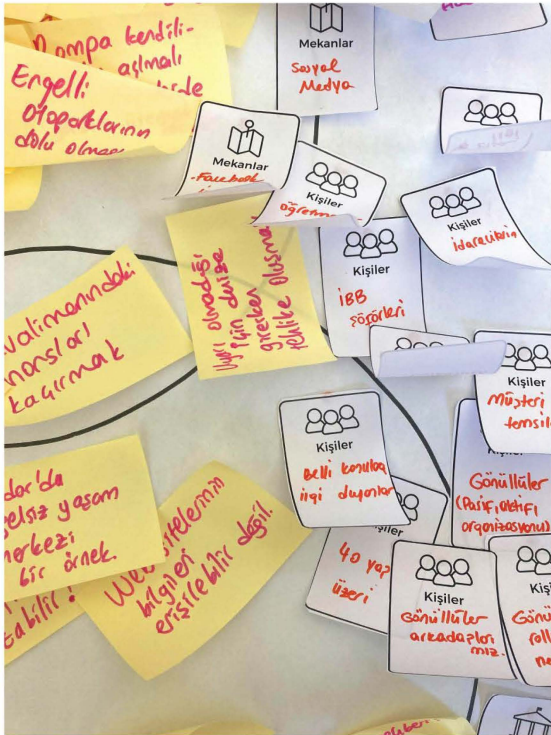 Rampa kendili-
açılmalı
Engelli
otoparklarının
dolu olması
Mekanlar
Sosyal
Medya
Mekanlar
Facebook
Kişiler
Kişiler
idarecilerin
Uyarı olmadığı
için denize
girerken
tehlike oluşması
Kişiler
İBB
şöförleri
valimanındaki
nonsları
kaçırmak
Kişiler
Müşteri
temsil
Kişiler
Belli konulara
ilgi duyanlar
Gönüllüler
(Pasif, aktif)
organizasyonu
dar'da
elsiz yaşam
merkezi
bir örnek.
tabilir!
Web sitelerinin
bilgileri
erişilebilir değil.
şiler
40 yaş
üzeri
Kişiler
Gönüllüler
arkadaşları
mız.
Kiş
Gönü
roll